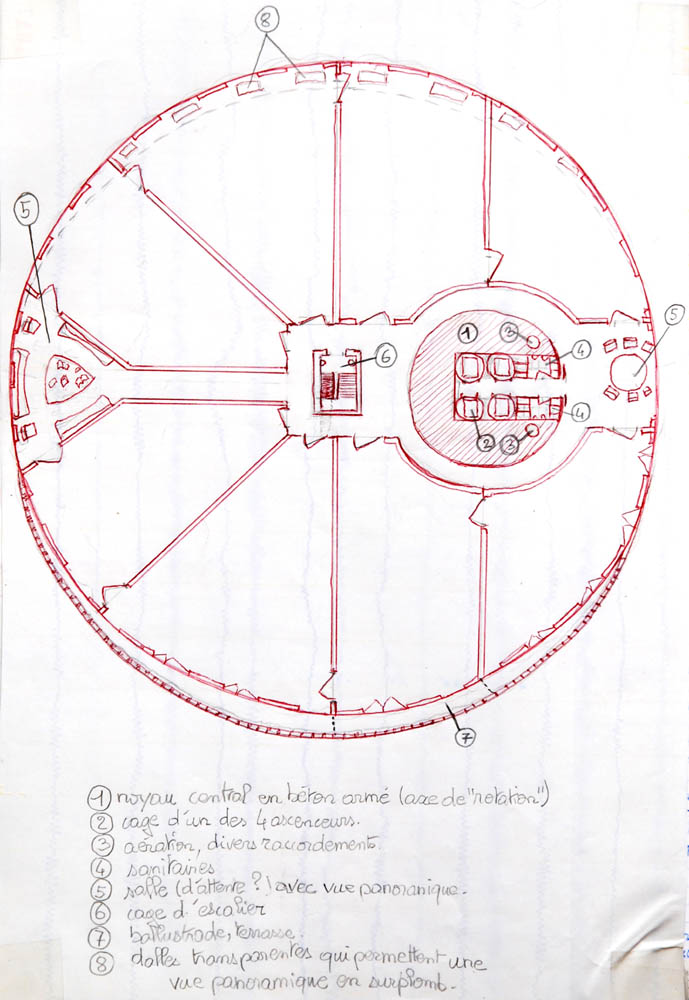 8
5
5
1
3
4
6
4
2
3
7
1 noyau central en béton armé (axe de "rotation")
2 cage d'un des 4 ascenceurs.
3 aération, divers raccordements.
4 sanitaires
5 salle (d'attente ?) avec vue panoramique.
6 cage d'escalier
7 ballustrade, terrasse.
8 dalles transparentes qui permettent une
vue panoramique en surplomb.